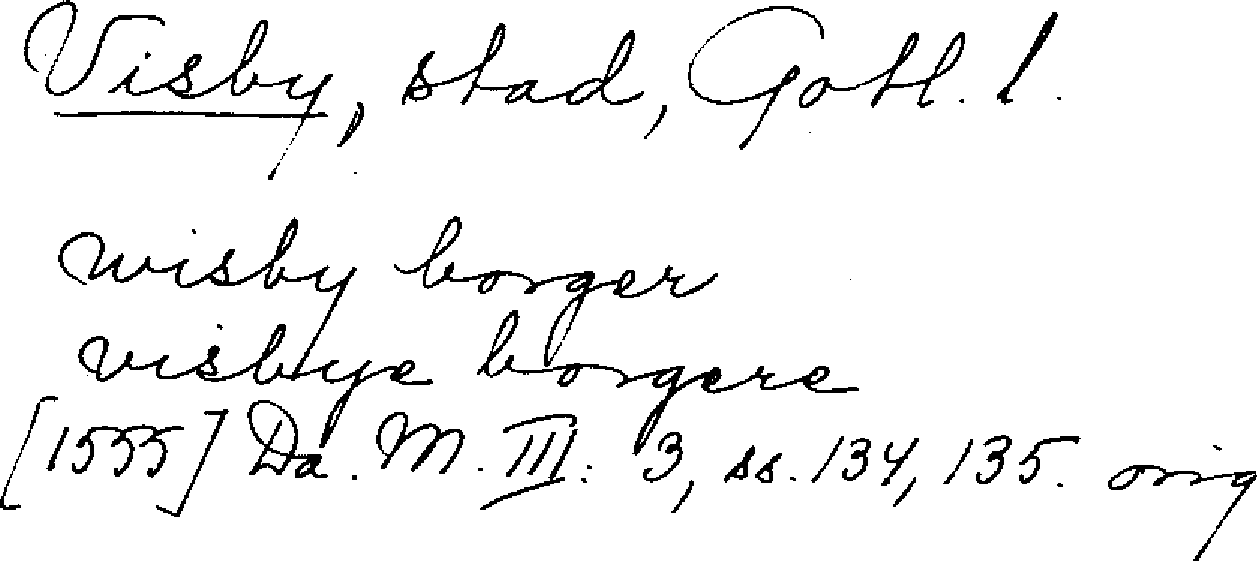 Visby, stad, Gotl. l.
wisby borger
visbye borgere
[1555] Da. M. III. 3, ss. 134, 135. orig